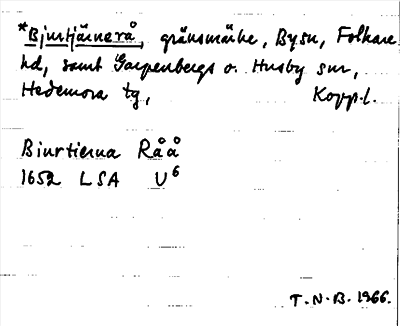 *Bjurtjärnerå, gränsmärke, By sn, Folkare
hd, samt Garpenbergs o. Husby snr,
Hedemora tg, Kopp.l.
Biurtierna Råå
1652 LSA U6
T.N.B. 1966.